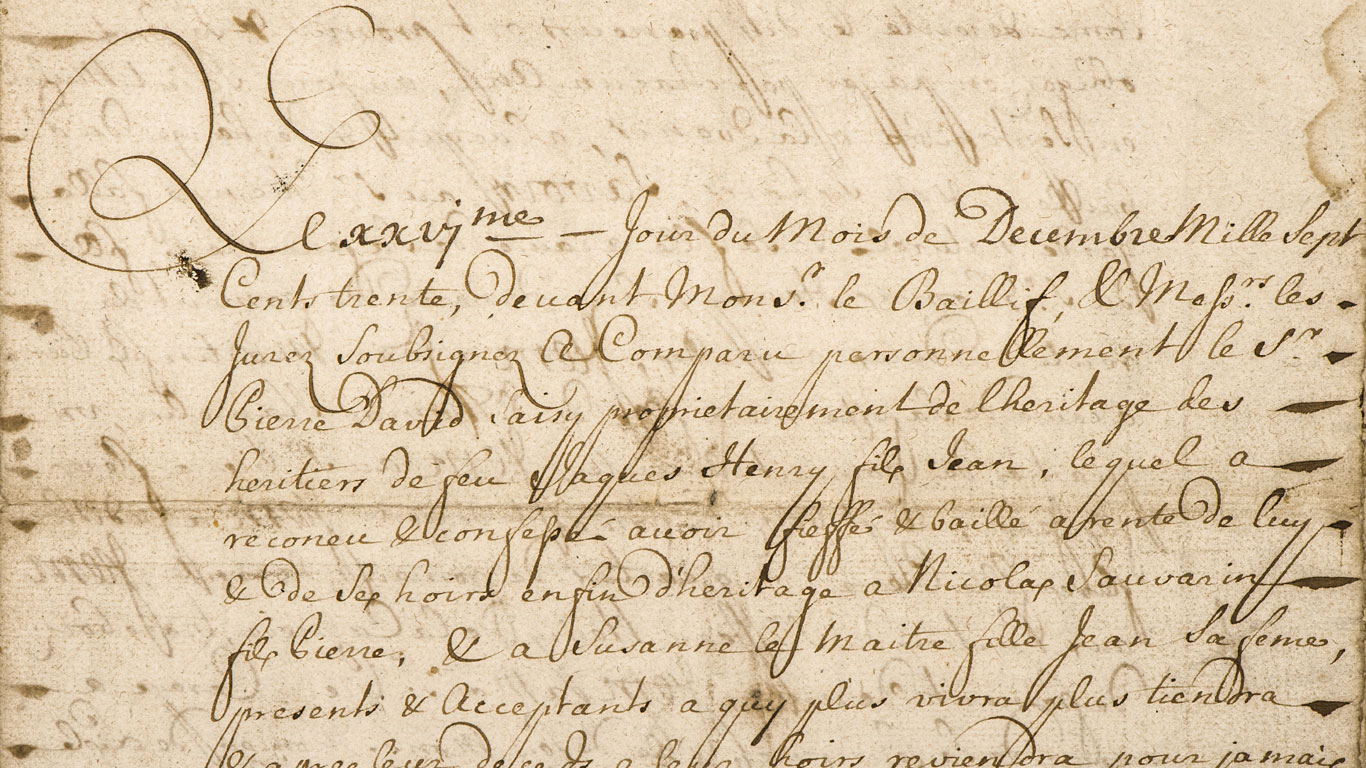 Le xxvj.me Jour du Mois de Decembre Mille Sept
Cents trente, devant Mons.r le Baillif, & Mess.rs les
Jurez Soubsignez Est Comparu personnellement le S.r
Pierre David Saisy proprietairement de l'heritage des
heritiers de feu Jaques Henry fils Jean, lequel a
reconeu & confessé avoir fieffé & baillé a rente de luy
& de ses hoirs en fin d'heritage a Nicolas Sauvarin
fils Pierre, & a Susanne le Maitre fille Jean sa feme,
presents & Acceptants a quy plus vivra plus tiendra
& apres leur deceds a leurs hoirs reviendra pour jamais